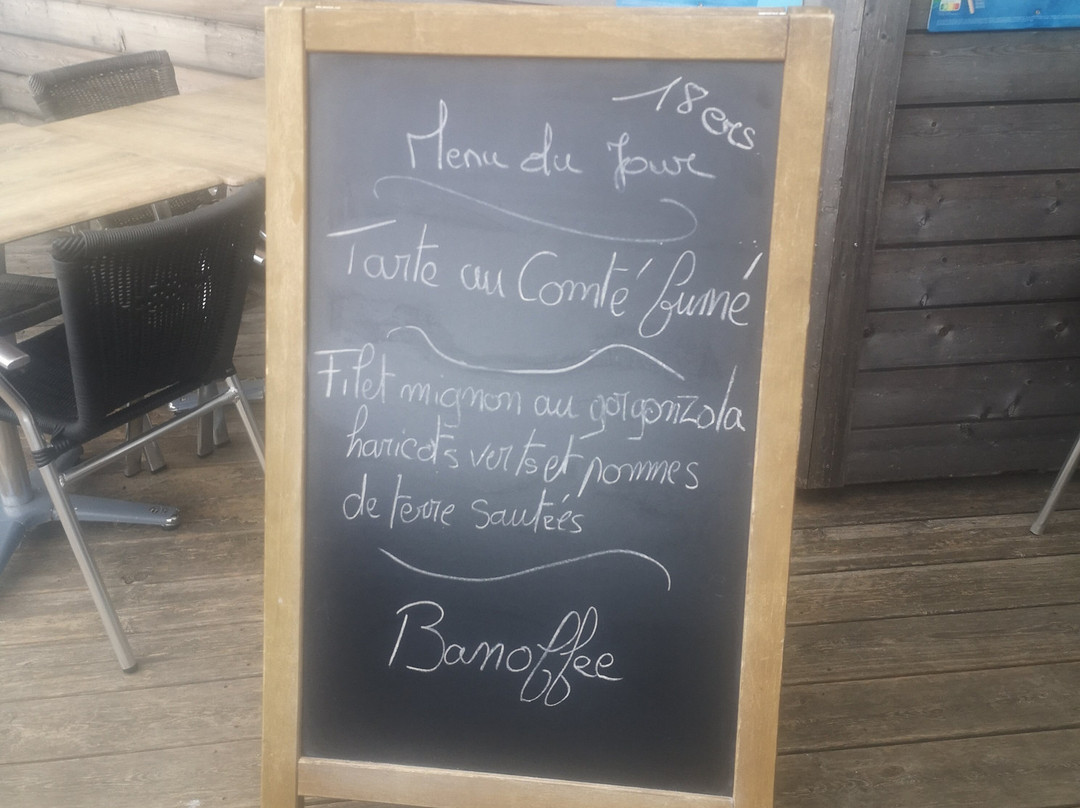 18 ers
Menu du Jour
Tarte au Comté fumé
Filet mignon au gorgonzola
haricots verts et pommes
de terre sautés
Banoffee